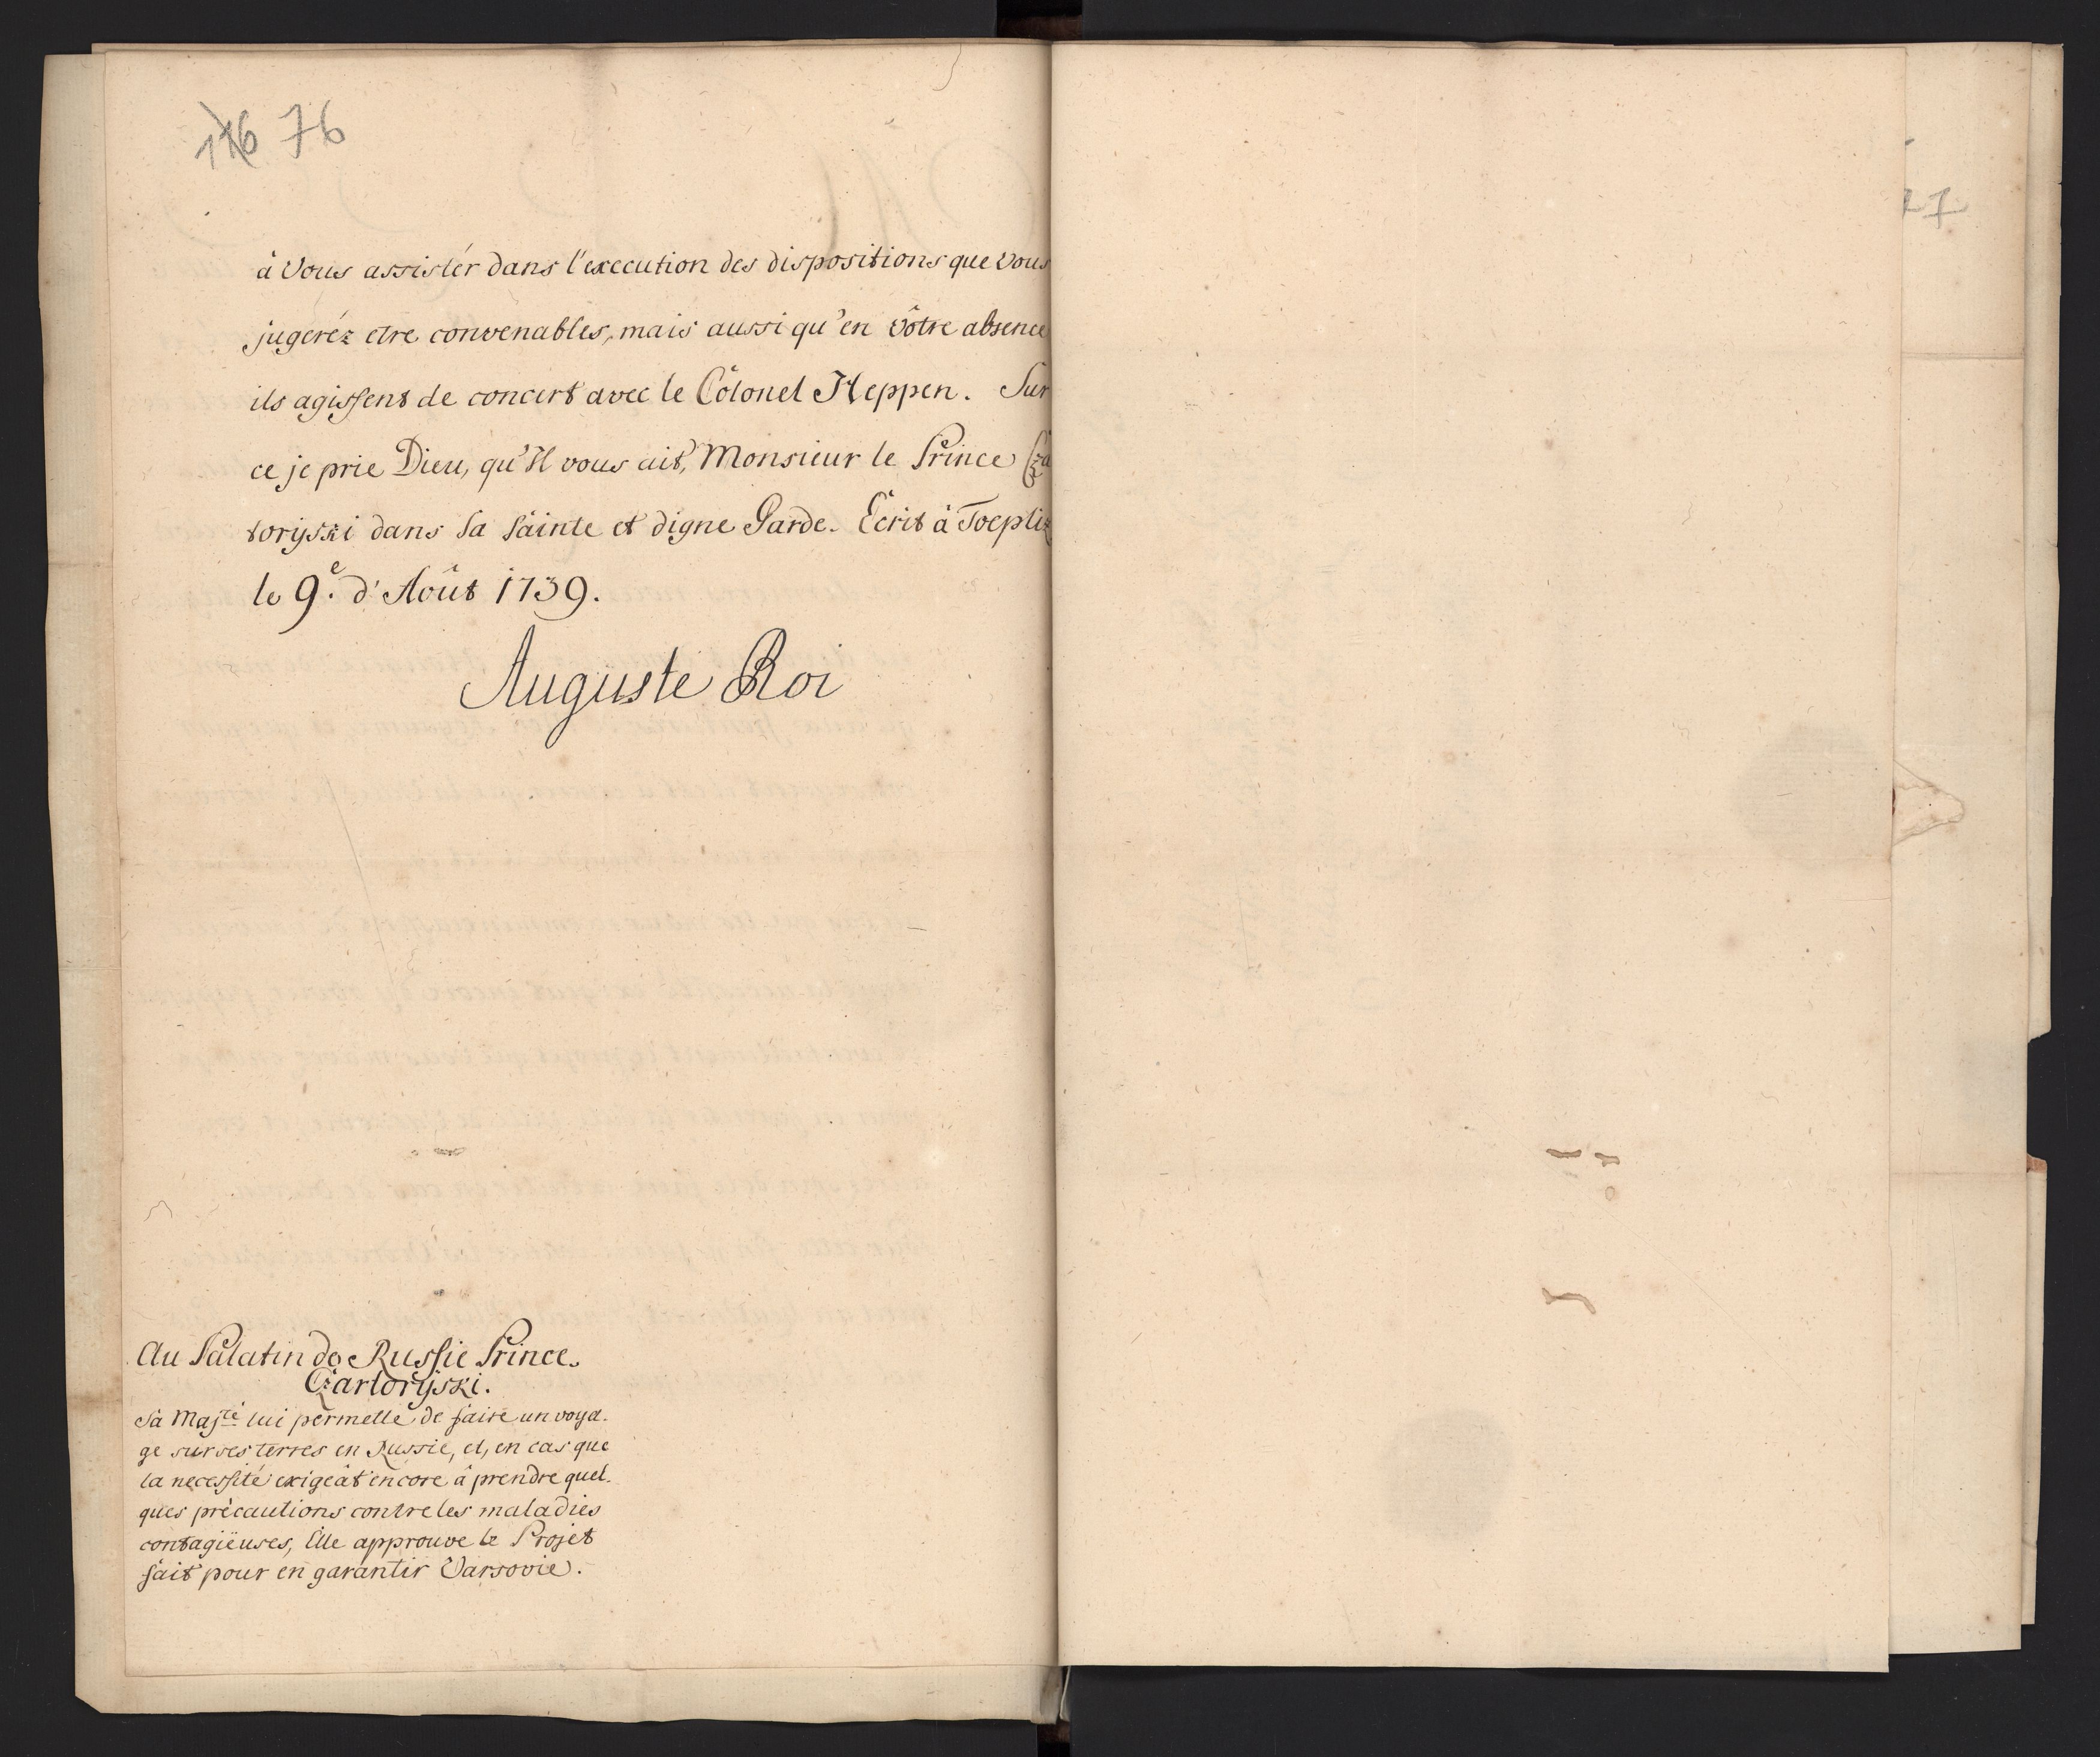 76
à Vous assistér dans l'execution des dispositions que Vous
jugeréz etre convenables, mais aussi qu'en Vôtre absence
ils agissent de concert avec le Côlonel Heppen. Sur
ce je prie Dieu, qu'Il vous ait, Monsieur le Prince Cza
torijski dans Sa Sainte et digne Garde. Ecrit à Toepliz
le 9.e d'Août 1739.
Auguste Roi
Au Palatin de Russie Prince
Czartorijski.
Sa Majté lui permette de faire un voya-
ge sur ses terres en Russie, et, en cas que
la necessité exigeât encore à prendre quel-
ques précautions contre les maladies
contagiëuses, Elle approuve le Projet
fait pour en garantir Varsovie.